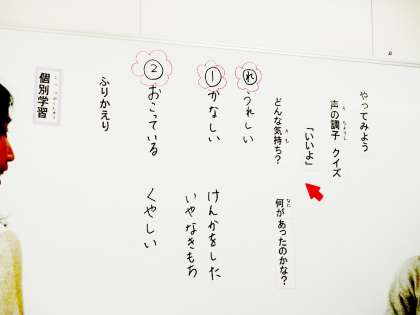 やってみよう
声の調子 クイズ
「いいよ」
どんな気持ち？ 何があったのかな？
れ うれしい
① かなしい けんかをした
いやなきもち
② おこっている くやしい
ふりかえり
個別学習